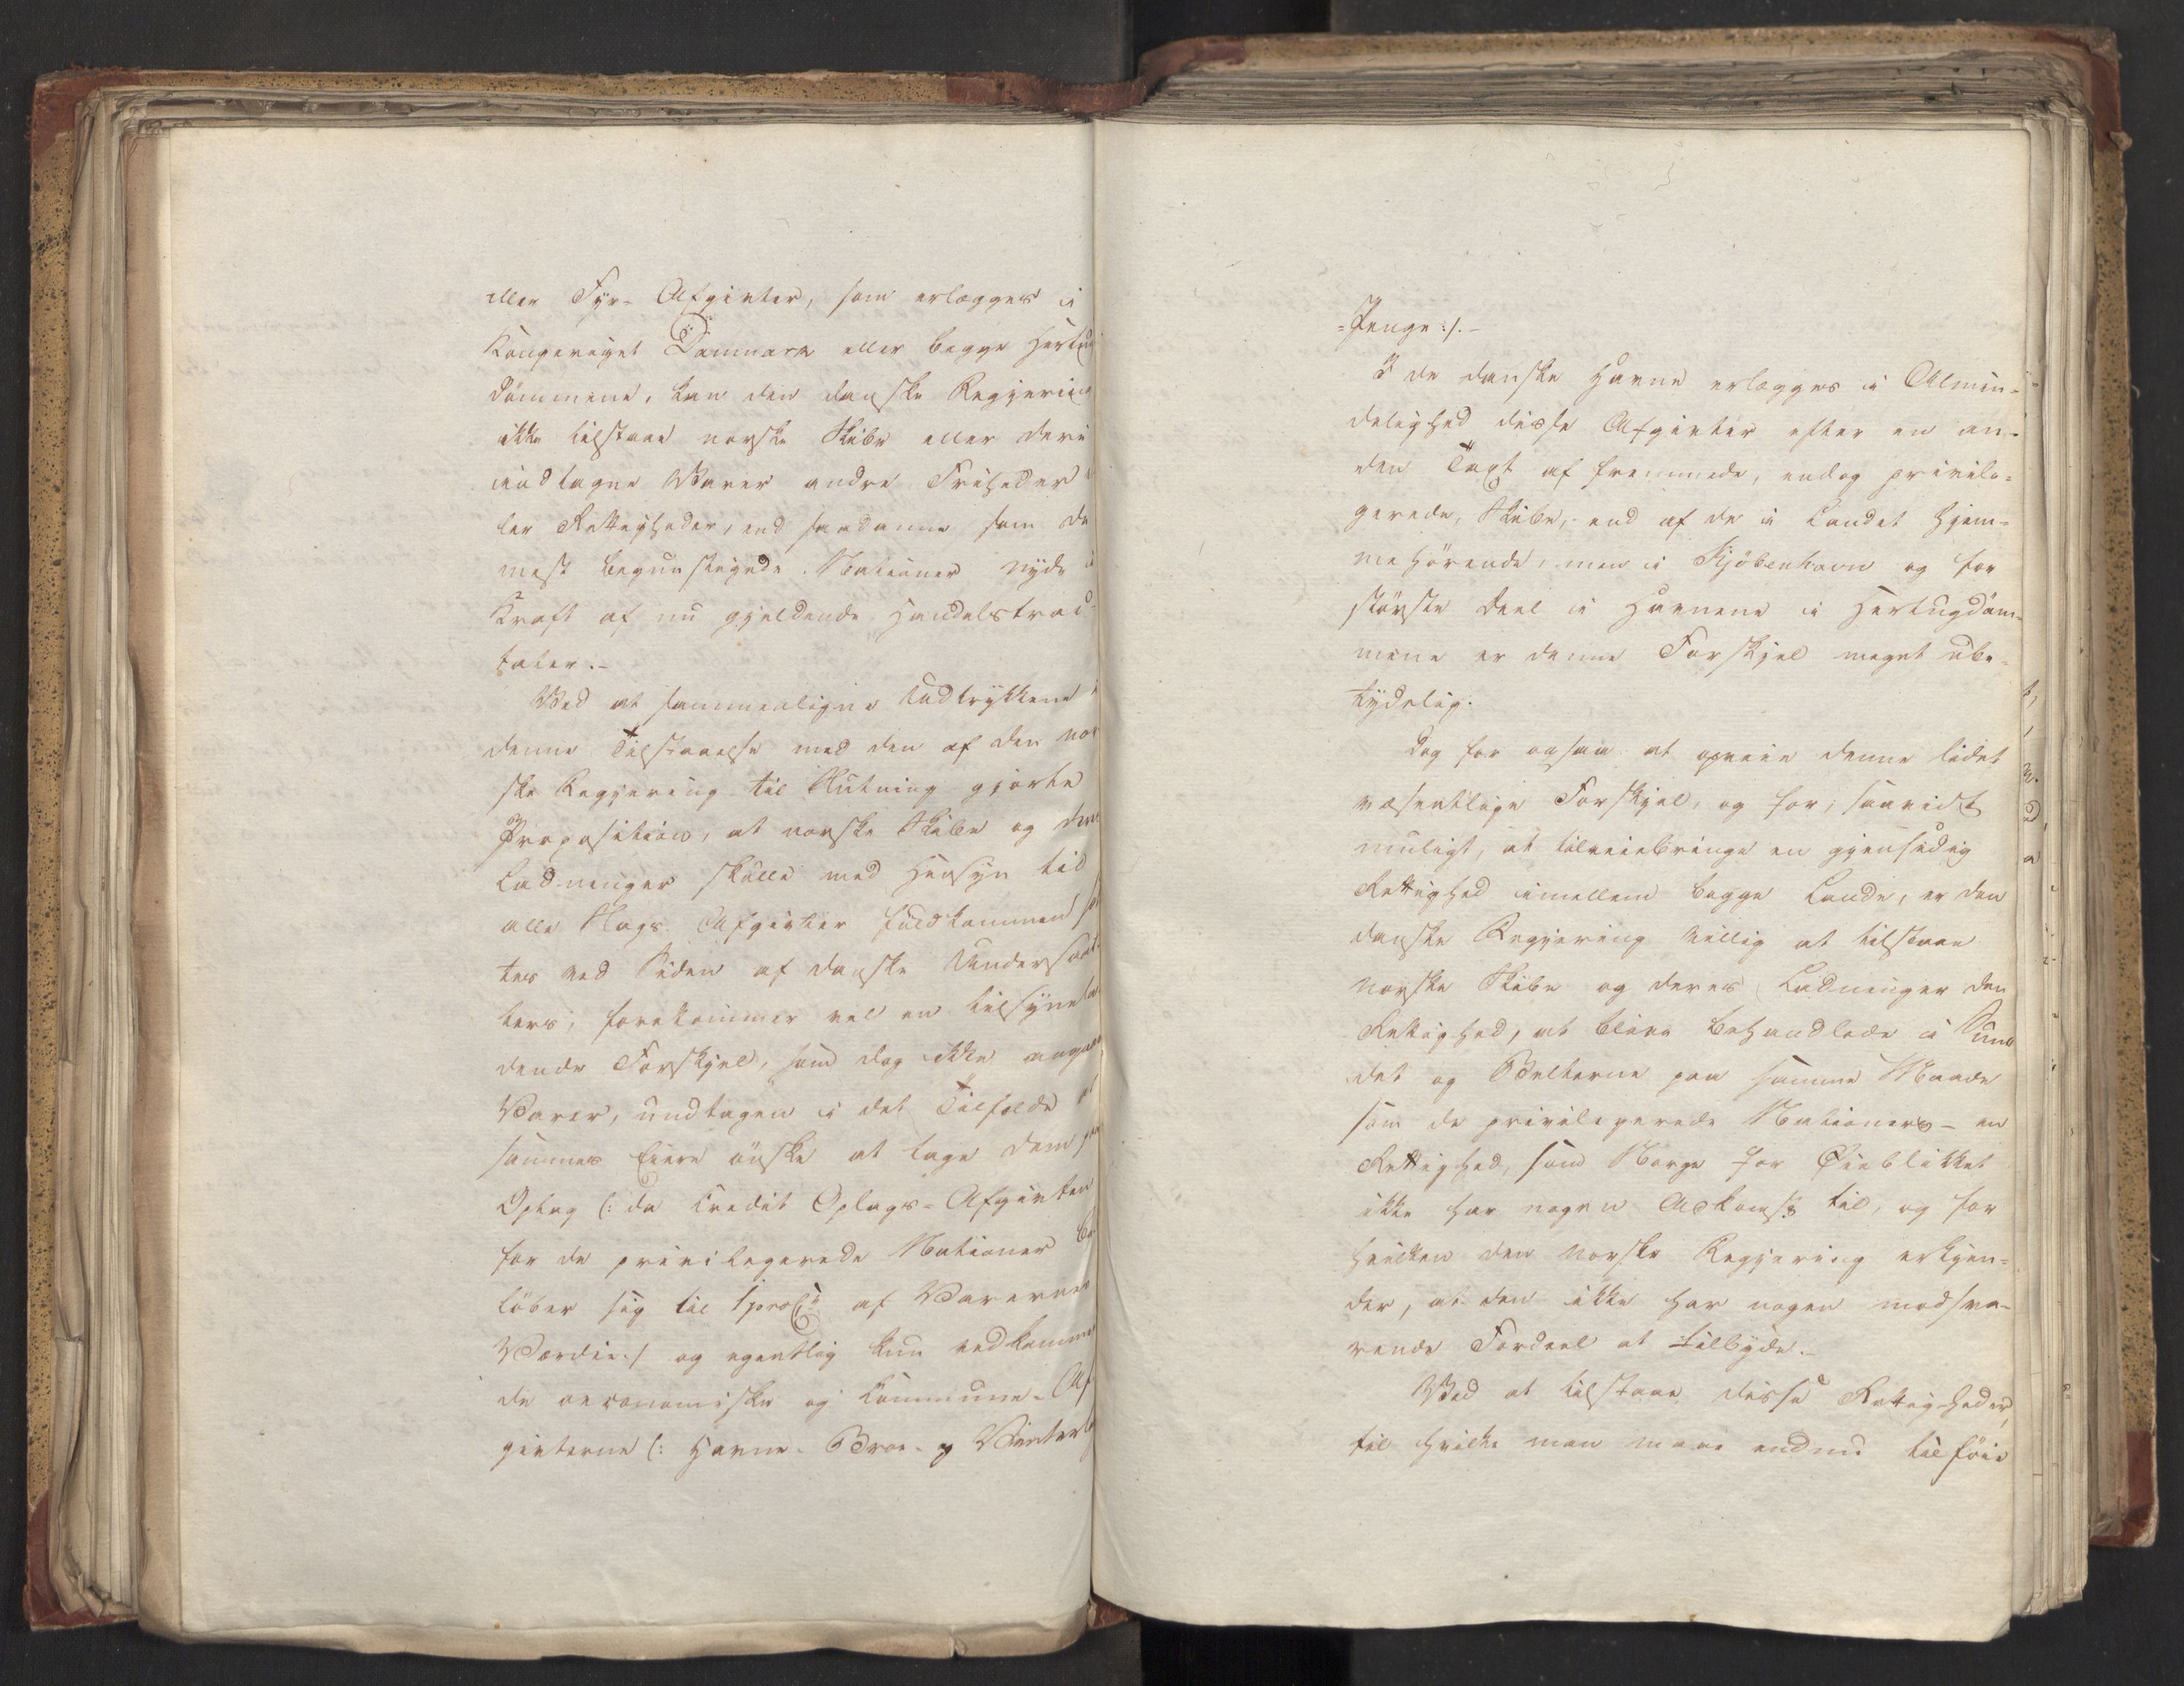 eller Fyr- Afgivter, som erlægges i
Kongeriget Danmark eller begge Hertug
dömmene, kan den danske Regjering
ikke tilstaae norske Skibe eller deri
indtagne Varer andre Friheder
ler Rettigheder, end saadanne som de
mest begunstigede Nationer nyde i
Kraft af nu gjeldende Handelstrac-
tater.-
Ved at sammenligne Udtrykkene i
denne Tilstaaelse med den af den nor
ske Regjering til Slutning gjorte
Proposition, at norske Skibe og deres
Ladninger skulle med Hensyn til
alle Slags Afgivter fuldkommen sæt
tes ved Siden af danske Undersaat-
ters, forekommer vel en tilsynela
dende Forskjel, som dog ikke angaaer
Varer, undtagen i det Tilfælde at
sammes Eiere önske at tage dem paa
Oplag (: da Credit Oplags-Afgivten
for de privilegerede Nationer be
löber sig til 1 proCt af Varernes
Værdie:/ og egentlig kun vedkommer
de oeconomiske og Commune-Af
givterne (: Havne- Broe- og Vinterlags
=Penge :/.-
I de danske Havne erlægges i Almin-
delighed disse Afgivter efter en an-
den Taxt af fremmede, endog privile-
gerede, Skibe, end af de i Landet hjem-
mehörende, men i Kjöbenhavn og for
störste Deel i Havnene i Hertugdöm-
mene er denne Forskjel meget ube-
tydelig.
Dog for ogsaa at hæve denne lidet
væsentlige Forskjel, og for, saavidt
muligt, at tilveiebringe en gjensidig
Rettighed imellem begge Lande, er den
danske Regjering villig at tilstaae
norske Skibe og deres Ladninger den
Rettighed, at blive behandlede i Sun
det og Belterne paa samme Maade
som de privilegerede Nationers - en
Rettighed, som Norge for Øieblikket
ikke har nogen Adkomst til, og for
hvilken den norske Regjering erkjen-
der, at den ikke har nogen modsva-
rende Fordeel at tilbyde.-
Ved at tilstaae disse Rettigheder,
til hvilke man maae endnu tilföie